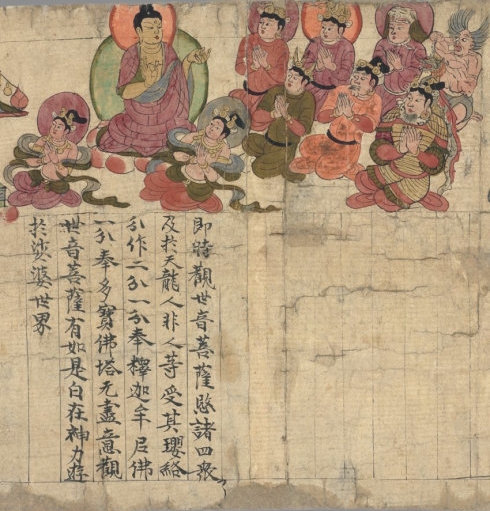 即時觀世音菩薩愍諸四衆
及於天龍人非人等受其瓔珞
分作二分一分奉釋迦牟尼佛
一分奉多寶佛塔无盡意觀
世音菩薩有如是自在神力遊
於娑婆世界